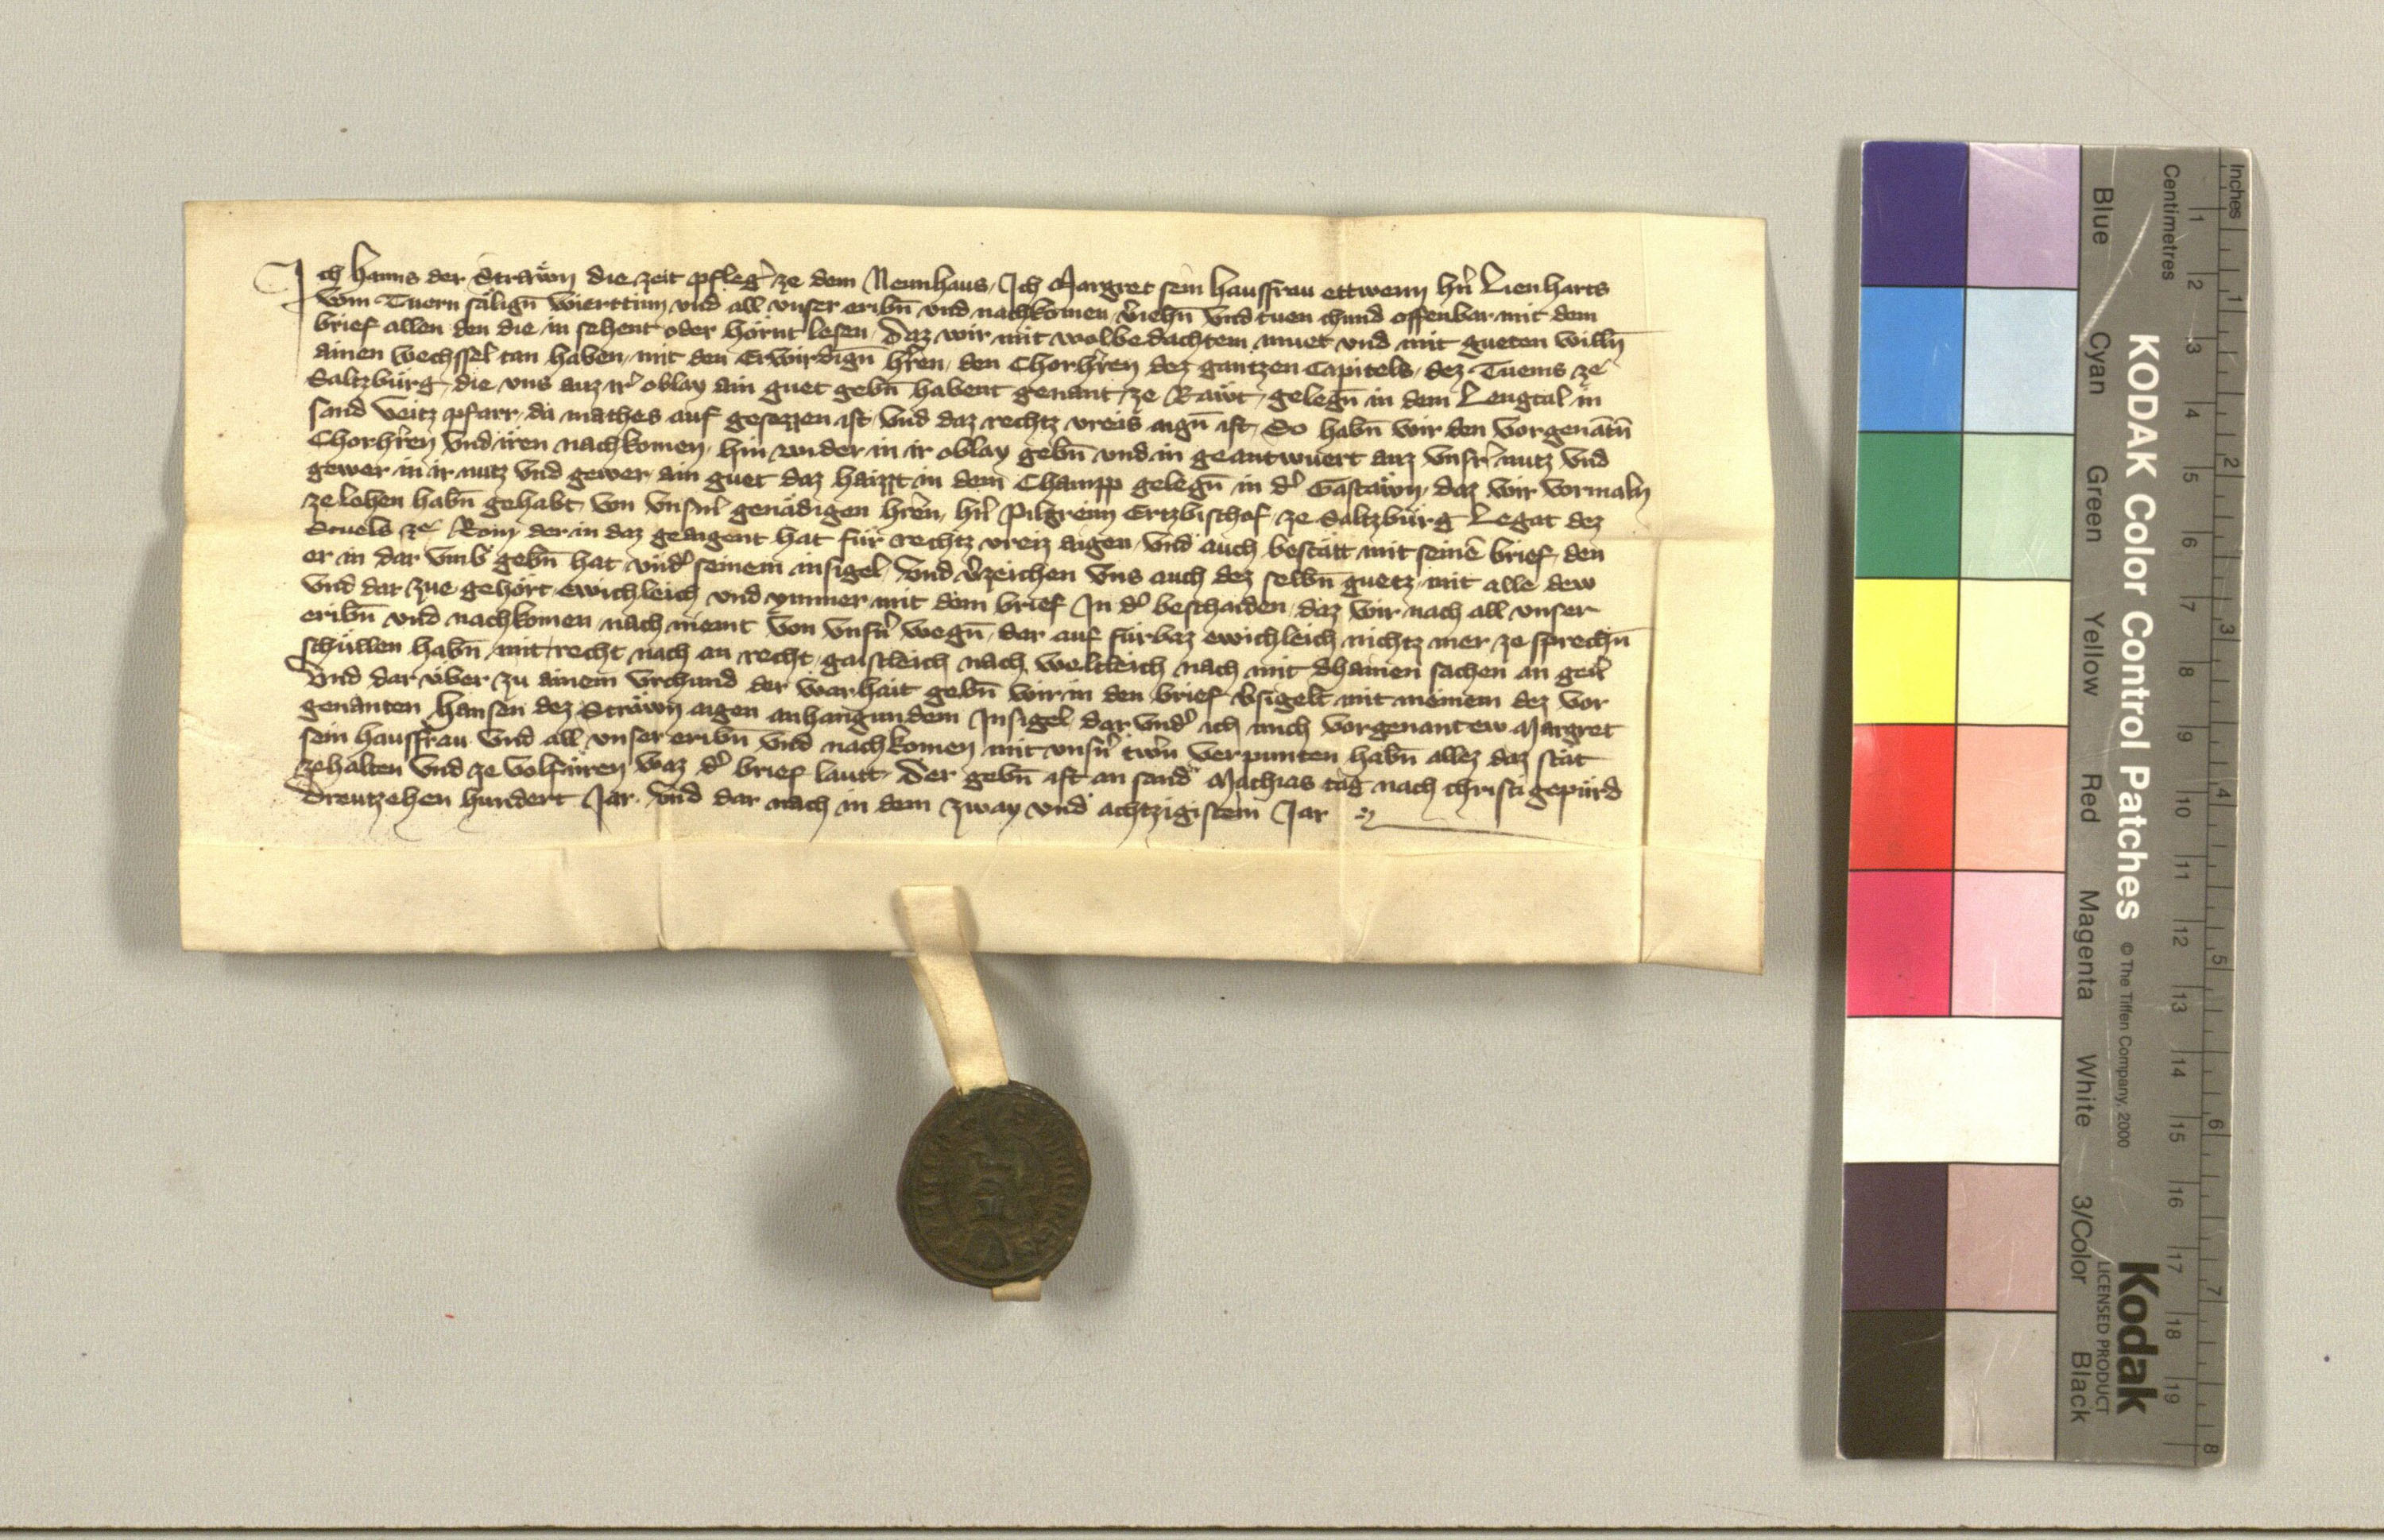 Ich Hanns der Sträwn die zeit pfleg̉ ze dem Neunhaus, Ich Margret sein hausfrau ettwenn hn̉ Lienharts
vom Tuern säligñ wierttinn und all unser eribñ und nachkomen v̉iehñ und tuen chund offenbar mit dem
brief allen den die in sehent oder hörnt lesen, Daz wir mit wolbedachtem muet und mit gueten willñ
ainen wechssel tan haben, mit den Erwirdigñ hr̉en, den Chorhr̉en dez gantzen Capitels, dez Tuems ze
Saltzburg, die uns auz ir̉ oblay ain guet gebñ habent genant ze Räwt, gelegñ in dem Lengtal in
sand Veitz pfarr, da mathes auf gesezzen ist, und daz rechtz vreis aigñ ist, So habñ wir den vorgenãtñ
Chorhr̉en und iren nachkomen, hin wider in ir oblay gebñ und in geantwuert auz unsr̉r nutz und
gewer in ir nutz und gewer, ain guet daz haizzt in dem Champp gelegñ in d̉ Gastäwn, daz wir vormaln
ze lehen habñ gehabt, von unsm̉ genädigen hr̉en, hn̉ Pilgreim Ertzbischof, ze Saltzburg Legat dez
Stuels ze Rom, der in daz geaigent hat für rechtz vreiz aigen, und auch bestätt mit seinẽ brief, den
er in dar umb gebñ hat und̉ seinem insigel, Und v̉zeichen uns auch dez selbñ guetz, mit alle dew
und dar zue gehört, ewichleich und ymmer mit dem brief In d̉ beschaiden, daz wir nach all unser
eribñ und nachkomen, nach niemt von unsn̉ wegñ, dar auf fürbaz ewichleich nichtz mer ze sprechñ
schüllen habñ, mit recht nach an recht, gaistleich nach weltleich nach mit dhainen sachen an geũ
Und dar über zu ainem urchund der warhait gebñ wir in den brief v̉sigelt mit meinem dez vor
genanten Hansen dez Sträwn aigen anhangundem Insigel, dar und̉ ich mich vorgenantew Margret
sein hausfrau und all unser eribñ und nachkomen mit unsn̉ trw̃n verpunten habñ allez daz stät
zehalten und ze volfüren waz d̉ brief lautt, Der gebñ ist an sand Mathias tag nach christi gepürd
Dreutzehen hundert Jar, und dar nach in dem zway und achtzigistem Jar
Inches
1 2 3 4 5 6 7 8
Centimetres
1 2 3 4 5 6 7 8 9 10 11 12 13 14 15 16 17 18 19
KODAK Color Control Patches © The Tiffen Company, 2000
Kodak
LICENSED PRODUCT
Blue Cyan Green Yellow Red Magenta White 3/Color Black